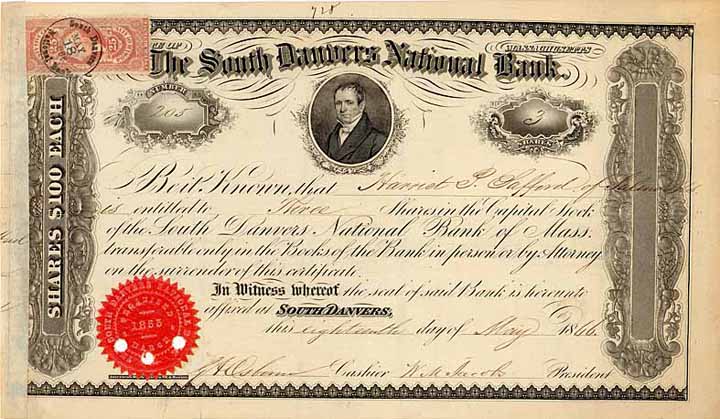 728
STATE OF MASSACHUSETTS
The South Danvers National Bank.
NUMBER
205
3
SHARES
SHARES $100 EACH
Be it Known, that Harriet P. Safford of Salem
is entitled to Three Shares in the Capital Stock
of the South Danvers National Bank of Mass.
transferable only in the Books of the Bank in person or by Attorney
on the surrender of this certificate.
In Witness whereof the seal of said Bank is hereunto
affixed at SOUTH DANVERS,
this eighteenth day of May 1866.
SOUTH DANVERS NATIONAL BANK
1865
Cashier W. M. Jacobs President